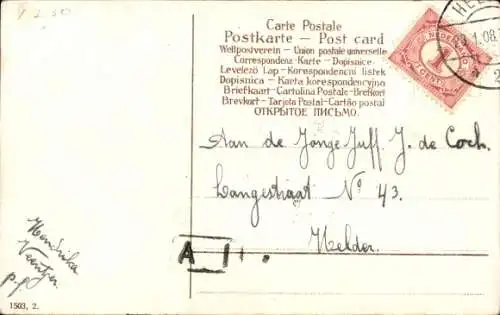 Carte Postale
Postkarte — Post card
Weltpostverein — Union postale universelle
Correspondenz-Karte — Dopisnice
Levelező Lap — Korespondencni listek
Dopisnica — Karta korespondencyjna
Briefkaart — Cartolina Postale — Brefkort
Brevkort — Tarjeta Postal — Cartão postal
ОТКРЫТОЕ ПИСЬМО.
NEDERLAND
1
CENT
1.08.
Aan de Jonge Juff. J. de Coch.
Langestraat No 43.
Helder.
A
Hendrika
p.f.
1503, 2.